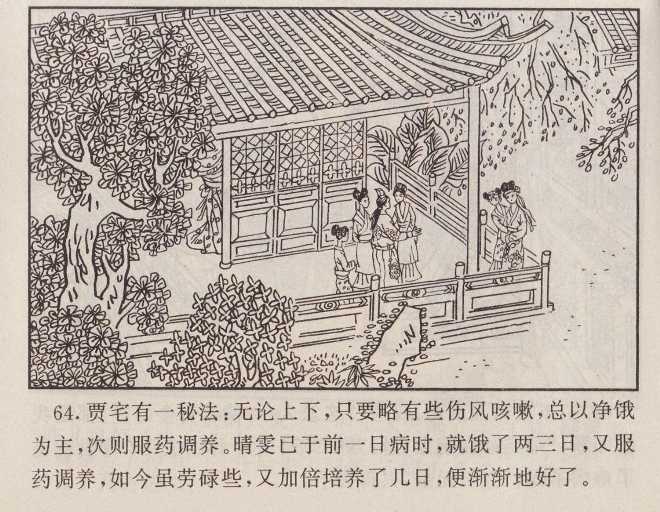 64. 贾宅有一秘法:无论上下,只要略有些伤风咳嗽,总以净饿
为主,次则服药调养。晴雯已于前一日病时,就饿了两三日,又服
药调养,如今虽劳碌些,又加倍培养了几日,便渐渐地好了。